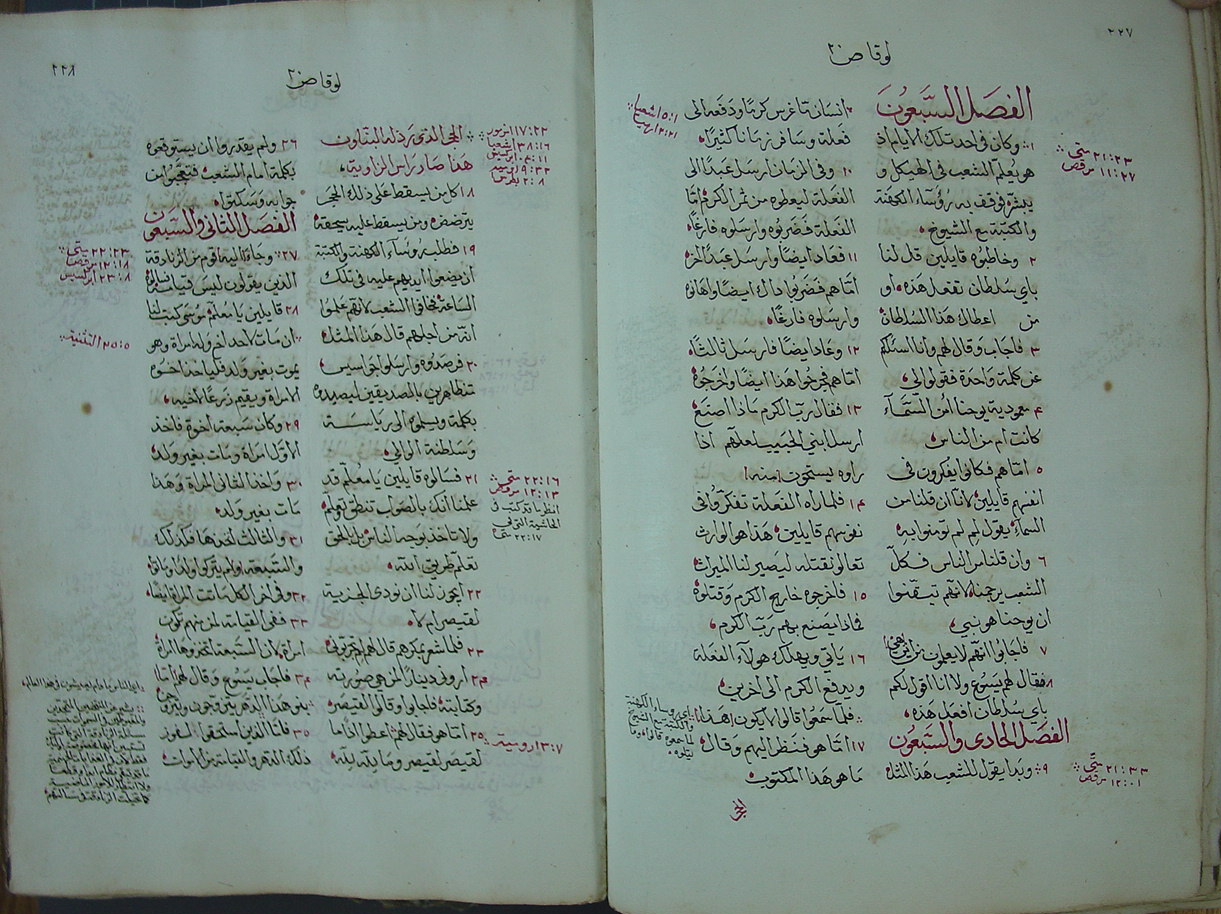 ٢٢٧
لوقا ص ٢٠
الفصل السبعون
١ وكان في احد تلك الايام اذ
هو يعلم الشعب في الهيكل و
يبشر فوقف به رؤساء الكهنة
والكتبة مع الشيوخ
٢ وخاطبوه قايلين قل لنا
باي سلطان تفعل هذه او
من اعطاك هذا السلطان
٣ فاجاب وقال لهم وانا اسئلكم
عن كلمة واحدة فقولوا لي
٤ معمودية يوحنا امن السماء
كانت ام من الناس
٥ اما هم فكانوا يفكرون في
انفسهم قايلين اننا ان قلنا من
السماء يقول لم لم تومنوا به
٦ وان قلنا من الناس فكل
الشعب يرجمنا لانهم تيقنوا
ان يوحنا هو نبي
٧ فاجابوا انهم لا يعلمون من اين هي
٨ فقال لهم يسوع ولا انا اقول لكم
باي سلطان افعل هذه
الفصل الحادي والسبعون
٩ وبدا يقول للشعب هذا المثل
متى ٢١:٢٣
مرقص ١١:٢٧
متى ٢١:٣٣
مرقص ١٢:٠١
انسان ما غرس كرما ودفعه الى
فعلة وسافر زمانا كثيرا
١٠ وفي الزمان ارسل عبدا الى
الفعلة ليعطوه من ثمر الكرم اما
الفعلة فضربوه وارسلوه فارغا
١١ فعاد ايضا وارسل عبدا اخر
اما هم فضربوا ذاك ايضا واهانوه
وارسلوه فارغا
١٢ وعاد ايضا فارسل ثالثا
اما هم فجرحوا هذا ايضا واخرجوه
١٣ فقال رب الكرم ماذا اصنع
ارسل ابني الحبيب لعلهم اذا
راوه يستحون [منه]
١٤ فلما راه الفعلة تفكروا في
نفوسهم قايلين هذا هو الوارث
تعالوا نقتله ليصير لنا الميراث
١٥ فاخرجوه خارج الكرم وقتلوه
فماذا يصنع بهم رب الكرم
١٦ ياتي ويهلك هولاء الفعلة
ويدفع الكرم الى اخرين
فلما سمعوا قالوا لا يكون [هذا]
١٧ اما هو فنظر اليهم وقال
ما هو هذا المكتوب
الحجر
اشعيا ٥:١
٢٢٨
لوقا ص ٢٠
الحجر الذي رذله البناون
هذا صار راس الزاوية
١٨ كل من يسقط على ذلك الحجر
يترضض ومن يسقط عليه يسحقه
١٩ فطلب روساء الكهنة والكتبة
ان يضعوا ايديهم عليه في تلك
الساعة فخافوا الشعب لانهم علموا
انه من اجلهم قال هذا المثل
٢٠ فرصدوه وارسلوا جواسيس
تتظاهرون بالصديقين ليصيدوه
بكلمة ويسلموه الى رياسة
وسلطنة الوالي
٢١ فسالوه قايلين يا معلم قد
علمنا انك بالصواب تنطق وتعلم
ولا تاخذ بوجه الناس بل بالحق
تعلم طريق الله
٢٢ ايجوز لنا ان نودي الجزية
لقيصر ام لا
٢٣ فلما شعر بمكرهم قال لهم لم تجربوني
٢٤ اروني دينارا لمن هي صورته
وكتابته فاجابوا وقالوا لقيصر
٢٥ اما هو فقال لهم اعطوا اذا ما
لقيصر لقيصر وما لله لله
متى ٢٢:١٦
مرقص ١٢:١٣
رومية ١٣:٧
٢٦ ولم يقدروا ان يستوقعوه
بكلمة امام الشعب فتعجبوا من
جوابه وسكتوا
الفصل الثاني والسبعون
٢٧ وجاء اليه قوم من الزنادقة
الذين يقولون ليس قيامة فسالوه
٢٨ قايلين يا معلم موسى كتب لنا
ان مات لاحد اخ وله امراة وهو
يموت بغير ولد فلياخذ اخوه
الامراة ويقيم زرعا لاخيه
٢٩ وكان سبعة اخوة فاخذ
الاول امراة ومات بغير ولد
٣٠ واخذ الثاني المراة وهذا
مات بغير ولد
٣١ والثالث اخذها فكذلك
والسبعة ولم يتركوا ولدا وماتوا
٣٢ وفي اخر الكل ماتت المراة ايضا
٣٣ ففي القيامة لمن منهم تكون
امراة لان السبعة اتخذوها امراة
٣٤ فاجاب يسوع وقال لهم اما
بنو هذا الدهر يتزوجون ويزوجون
٣٥ فاما الذين استحقوا الفوز
ذلك الدهر والقيامة من الاموات
متى ٢٢:٢٣
مرقص ١٢:١٨
٢٣:٨ ابركسيس
٢٥:٥ التثنية